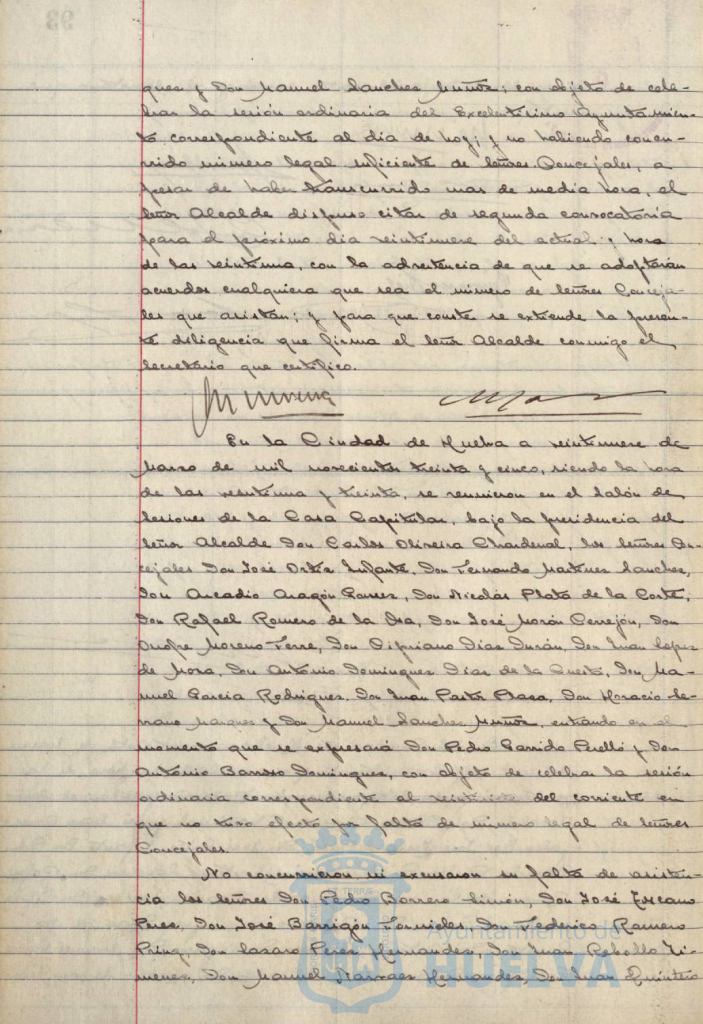 ques y Don Manuel Sanchez Muñoz; con objeto de cele-
brar la sesión ordinaria del Excelentísimo Ayuntamien-
to correspondiente al dia de hoy; y no habiendo concu-
rrido número legal suficiente de señores Concejales, a
pesar de haber transcurrido mas de media hora, el
señor Alcalde dispuso citar de segunda convocatoria
para el próximo dia veintinueve del actual y hora
de las veintiuna, con la advertencia de que se adoptarán
acuerdos cualquiera que sea el número de señores Conceja-
les que asistan; y para que conste se extiende la presen-
te diligencia que firma el señor Alcalde conmigo el
Secretario que certifico.
En la Ciudad de Huelva a veintinueve de
Marzo de mil novecientos treinta y cinco, siendo la hora
de las veintiuna y treinta, se reunieron en el Salón de
Sesiones de la Casa Capitular, bajo la presidencia del
señor Alcalde Don Carlos Oliveira Chardenal, los señores Con-
cejales Don José Ortiz Infante, Don Fernando Martinez Sanchez,
Don Arcadio Aragón Gomez, Don Nicolás Plata de la Corte,
Don Rafael Romero de la Osa, Don José Morón Cerrejón, Don
Onofre Moreno Ferre, Don Cipriano Dias Durán, Don Juan Lopez
de Mora, Don António Dominguez Diaz de la Cuesta, Don Ma-
nuel Garcia Rodriguez, Don Juan Pastor Plaza, Don Horacio Se-
rrano Marquez y Don Manuel Sanchez Muñoz, entrando en el
momento que se expresará Don Pedro Garrido Perelló y Don
António Barroso Dominguez, con objeto de celebrar la sesión
ordinaria correspondiente al del corriente en
que no tuvo efecto por falta de número legal de señores
Concejales.
No concurrieron ni excusaron su falta de asisten-
cia los señores Don Pedro Borrero Limón, Don José Escano
Perez, Don José Barrigón Fornieles, Don Federico Romero
Don Lazaro Perez Hernandez, Don Juan Rebollo Ji-
menez, Don Manuel Narvaez Hernandez, Don Juan Quintero
Ayuntamiento de
HUELVA